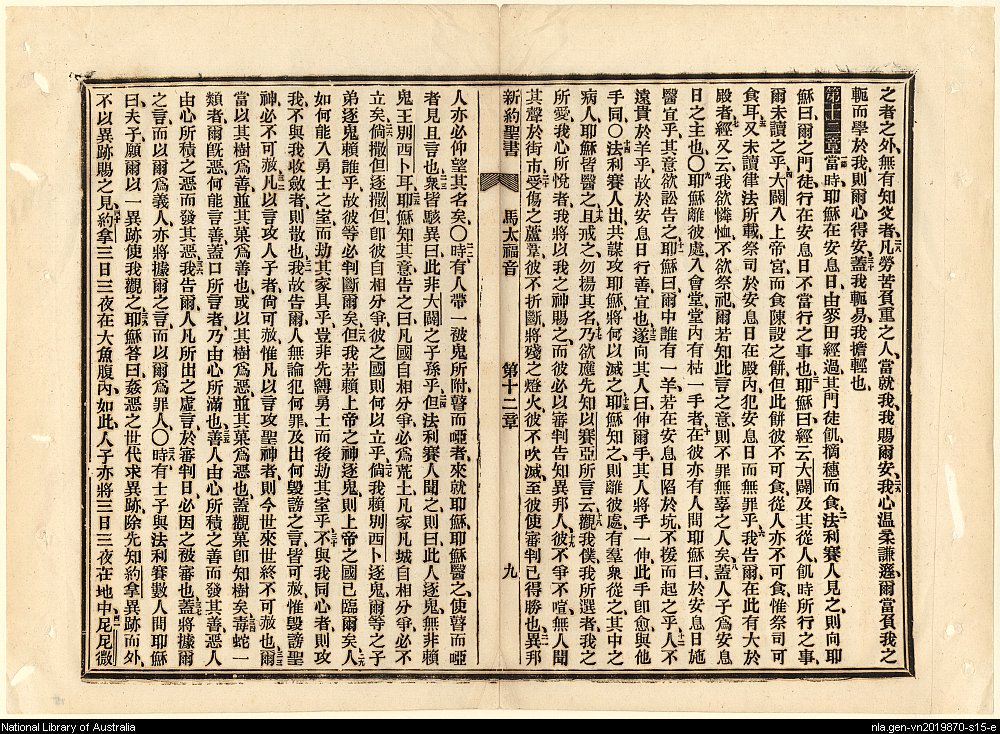 之者之外、無有知父者、凡勞苦負重之人、當就我、我賜爾安、我心溫柔謙遜、爾當負我之
軛而學於我、則爾心得安、蓋我軛易、我擔輕也
第十二章當時、耶穌在安息日、由麥田經過、其門徒飢、摘穗而食、法利賽人見之、則向耶
穌曰、爾之門徒、行在安息日不當行之事也、耶穌曰、經云大闢及其從人飢時所行之事、
爾未讀之乎、大闢入上帝宮而食陳設之餅、但此餅彼不可食、從人亦不可食、惟祭司可
食耳、又未讀律法所載、祭司於安息日在殿內、犯安息日而無罪乎、我告爾、在此有大於
殿者、經又云、我欲憐恤、不欲祭祀、爾若知此言之意、則不罪無辜之人矣、蓋人子爲安息
日之主也、〇耶穌離彼處、入會堂、堂內有枯一手者在、彼亦有人問耶穌曰、於安息日施
醫宜乎、其意欲訟告之、耶穌曰、爾中誰有一羊、若在安息日陷於坑、不援而起之乎、人不
遠貴於羊乎、故於安息日行善宜也、遂向其人曰、伸爾手、其人將手一伸、此手卽愈、與他
手同、〇法利賽人出、共謀攻耶穌、將何以滅之、耶穌知之、則離彼處、有羣衆從之、其中之
病人、耶穌皆醫之、且戒之、勿揚其名、乃欲應先知以賽亞所言云、觀我僕、我所選者、我之
所愛、我心所悅者、我將以我之神賜之、而彼必以審判告知異邦人、彼不爭不喧、無人聞
其聲於街市、受傷之蘆葦、彼不折斷、將殘之燈火、彼不吹滅、至彼使審判已得勝也、異邦
新約聖書 馬太福音 第十二章 九
人亦必仰望其名矣、〇時有人帶一被鬼所附、瞽而啞者、來就耶穌、耶穌醫之、使瞽而啞
者見且言也、衆皆駭異曰、此非大闢之子孫乎、但法利賽人聞之、則曰、此人逐鬼、無非賴
鬼王別西卜耳、耶穌知其意、告之曰、凡國自相分爭、必爲荒土、凡家凡城自相分爭、必不
立矣、倘撒但逐撒但、卽彼自相分爭、彼之國則何以立乎、倘我賴別西卜逐鬼、爾等之子
弟逐鬼賴誰乎、故彼等必判斷爾矣、但我若賴上帝之神逐鬼、則上帝之國已臨爾矣、人
如何能入勇士之室、而劫其家具乎、豈非先縛勇士、而後劫其室乎、不與我同心者、則攻
我、不與我收斂者、則散也、我故告爾、人無論犯何罪、及出何毀謗之言、皆可赦、惟毀謗聖
神、必不可赦、凡以言攻人子者、尙可赦、惟凡以言攻聖神者、則今世來世終不可赦也、爾
當以其樹爲善、並其菓爲善也、或以其樹爲惡、並其菓爲惡也、蓋觀菓卽知樹矣、毒蛇一
類者、爾旣惡、何能言善、蓋口所言者、乃由心所滿也、善人由心所積之善而發其善、惡人
由心所積之惡而發其惡、我告爾、人凡所出之虛言、於審判日、必因之被審也、蓋將據爾
之言而以爾爲義人、亦將據爾之言而以爾爲罪人、〇時有士子與法利賽數人問耶穌
曰、夫子、願爾以一異跡使我觀之、耶穌答曰、姦惡之世代求異跡、除先知約拿異跡而外、
不以異跡賜之、見約拿三日三夜在大魚腹內、如此人子亦將三日三夜在地中、尼尼微
National Library of Australia
nla.gen-vn2019870-s15-e